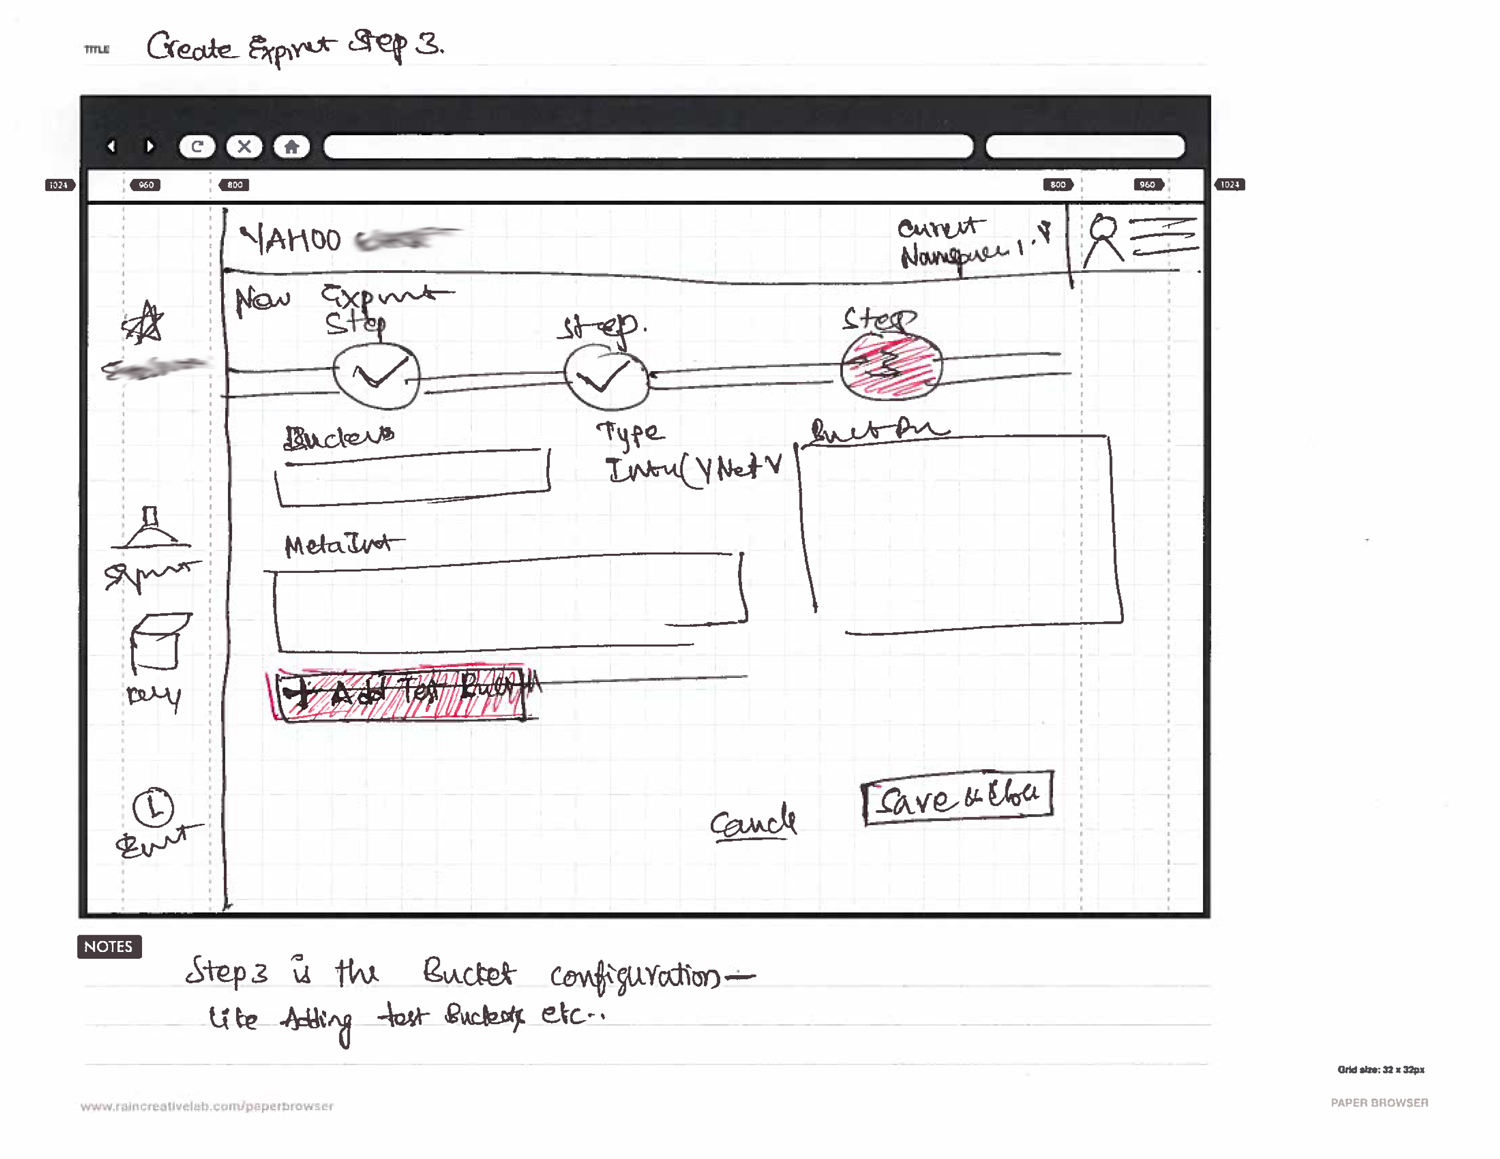 TITLE Create Expmt Step 3.
1024 960 800 800 960 1024
YAHOO
Current
Namespace 1.
New Expmt
Step Step. Step
3
Buckets
Type
MetaInt
Expmt
+ Add Test Bucket
Cancel
Save & Close
NOTES
Step 3 is the Bucket configuration—
Like Adding test Buckets etc..
Grid size: 32 x 32px
www.raincreativelab.com/paperbrowser
PAPER BROWSER